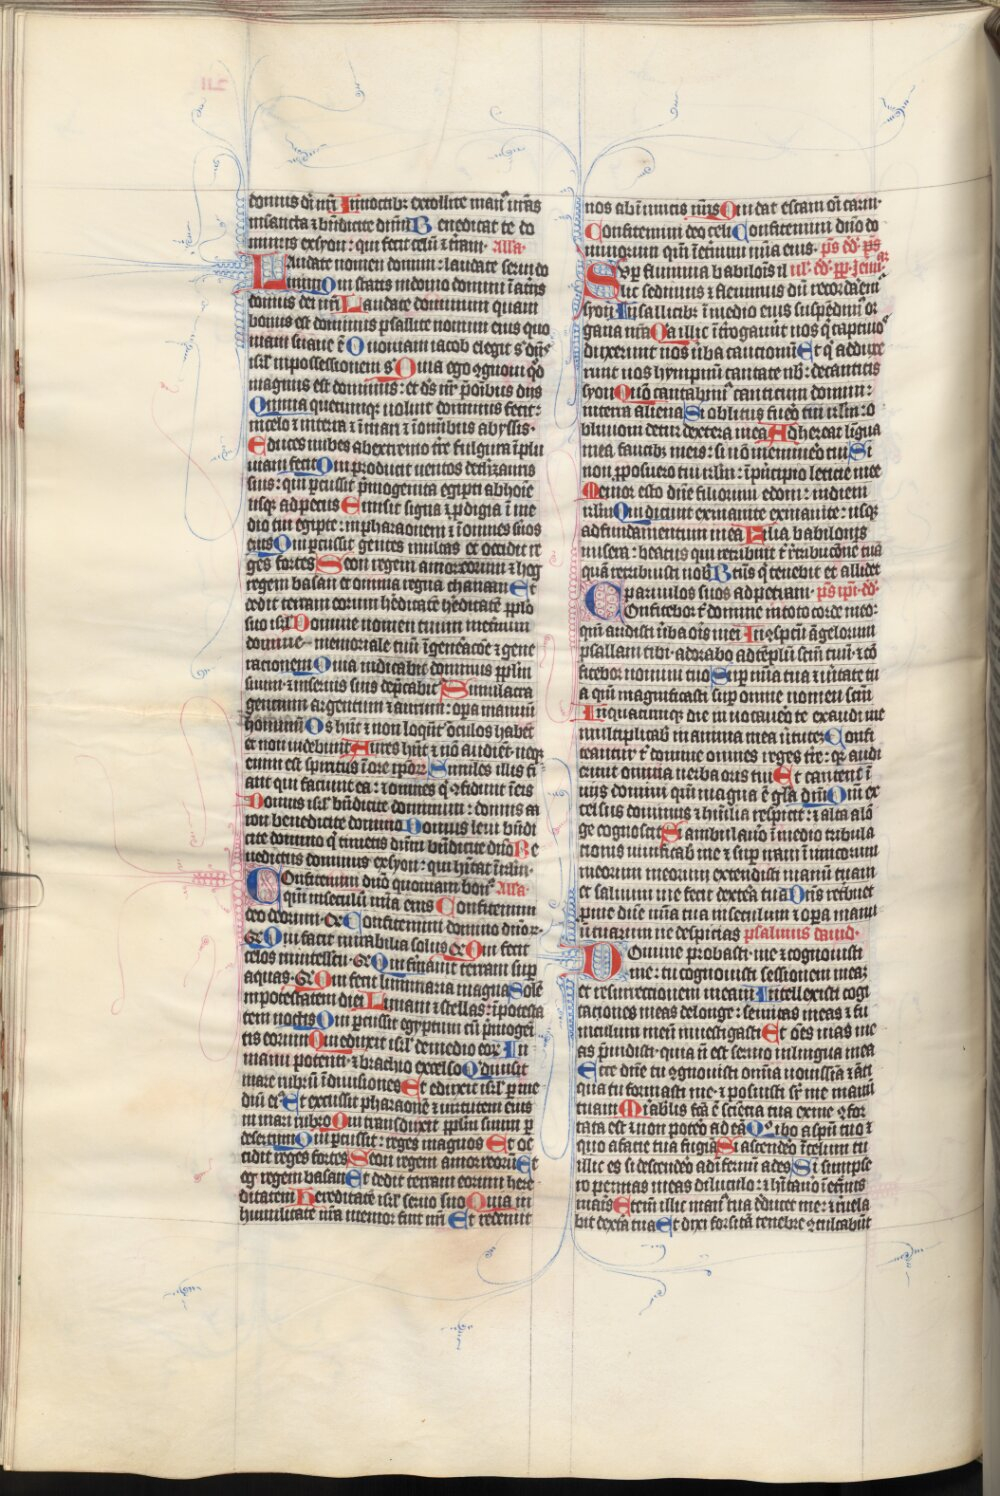 domus dei nr̄i In noctibꝫ extollite man᷒ vr̄as
in sancta ⁊ bn̄dicite dn̄m Benedicat te do
minus ex syon: qui fecit celū ⁊ t̄ram. All'a.
Laudate nomen domini: laudate serui do
minū Qui statis in domo domini ī atriis
domus dei nr̄i Laudate dominum quia
bonus est dominus psallite nomini eius quo
niam suaue ē Quoniam iacob elegit s' dn̄s
isr̄l in possessionem s' Quia ego ꝯgnoui qd̄
magnus est dominus: et ds̄ nr̄ p̄ oībus diis
Omnia quecunqꝫ uoluit dominus fecit:
in celo ⁊ in terra ⁊ in mari ⁊ ī omnibus abyssis.
Educes nubes ab extremo tr̄e fulgura ī plu
uiam fecit Qui producit uentos de thesauris
suis: qui percussit p̄mogenita egipti ab hoīe
usqꝫ ad pecus Emisit signa ⁊ ꝓdigia ī me
dio tui egipte: in pharaonem ⁊ ī omnes suos
eius Qui percussit gentes multas et occidit re
ges fortes Seon regem amorreorum ⁊ hog
regem basan et omnia regna chanaan Et
dedit terram eorum hēditatē hēditatē pplō
suo isr̄l Domine nomen tuum in et̄num
domine memoriale tuū ī gen̄acōe ⁊ gene
racionem Quia iudicabit dominus pplm̄
suum ⁊ in seruis suis dep̄cabit᷒ Simulacra
gentium argentum ⁊ aurum: opa manuū
hominū Os hn̄t ⁊ non loquēt᷒ oculos habēt
et non uidebunt Aures hn̄t ⁊ nō audiēt neqꝫ
enim est spiritus ī ore ip̄oꝝ Similes illis fi
ant qui faciunt ea: ⁊ omnes q̄ ꝯfidunt ī eis
Domus isr̄l bn̄dicite dominum: domus aa
ron benedicite domino Domus leui bn̄di
cite domino q̄ timetis dn̄m bn̄dicite dn̄o Be
nedictus dominus ex syon: qui hītat ī irl'm.
Confitemini dn̄o quoniam bon᷒ All'a.
qm̄ in seculū mīa eius Confitemini
deo deorum. ex Confitemini domino dn̄oꝝ.
ex Qui facit mirabilia solus ex Qui fecit
celos in intellcū. ex Qui firmauit terram sup
aquas. ex Qui fecit luminaria magna Solē
in potestatem diei Lunam ⁊ stellas: ī potesta
tem noctis Qui percussit egyptum cū p̄mogei
tis eorum Qui eduxit isr̄l de medio eoꝝ In
manu potenti ⁊ brachio excelso Q' diuisit
mare rubrū ī diuisiones Et eduxit isr̄l p me
diū ei᷒ Et excussit pharaonē ⁊ uirtutem eius
in mari rubro Qui transduxit pplm̄ suum p
desertum Qui percussit: reges magnos Et oc
cidit reges fortes Seon regem amorreorū Et
og regem basan Et dedit terram eorum here
ditatem Hereditatē isr̄l seruo suo Quia in
humilitate nr̄a memor fuit nr̄i Et redemit
nos ab inimicis nr̄is Qui dat escam oī carni.
Confitemini deo celi Confitemini dn̄o do
minorum qm̄ ī et̄num mīa eius. p̄s dd. p̄s
Sup flumina babilōis il
luc sedimus ⁊ fleuimus dū recordarem᷒
syon In salicibꝫ ī medio eius suspēdim᷒ or
gana nr̄a Quia illic īt̄rogauūt nos q̄ captiuos
duxerunt nos ūba cantionū Et q̄ abduxe
runt nos hympnū cantate nb̄: de canticis
syon Quō cantabim᷒ canticum domini:
in terra aliena Si oblitus fuēo tui irl'm: o
bliuioni detur dextera mea Adhereat lingua
mea faucibꝫ meis: si nō meminēo tui Si
non ꝓposuero tui irl'm: ī pncipio leticie mee
Memor esto dn̄e filiorum edom: in diem
irl'm Qui dicunt exinanite exinanite: usqꝫ
ad fundamentum in ea Filia babilonis
misera: beatus qui retribuit t̄ ret̄butōne tuā
quā retribuisti nob̄ Bt̄us q̄ tenebit et allidet
paruulos suos ad petram. p̄s ip̄i dd.
Confitebor t̄ domine in toto corde meo:
qm̄ audisti ūba oris mei In ꝯspcū āgelorum
psallam tibi. adorabo ad tēplū sc̄m tuū. ⁊ cō
fitebor nomini tuo Sup mīa tua ⁊ ūitate tu
a qm̄ magnificasti sup omne nomen sc̄m
In quacunqꝫ die inuocauēo te exaudi me
multiplicabis in anima mea ūtutem Confi
teantur t̄ domine omnes reges tr̄e: qꝛ audi
erunt omnia uerba oris tui Et cantent ī
uiis domini qm̄ magna ē gl'a dn̄i Qm̄ ex
celsus dominus ⁊ hūilia respicit: ⁊ alta a lō
ge cognoscit Si ambulauēo ī medio tribula
tionis uiuificab' me ⁊ sup iram inimicorum
meorum meorum extendisti manū tuam
et saluum me fecit dext̄a tua Dn̄s ret̄buet
p me dn̄e mīa tua in seculum ⁊ opa manu
ū tuarum ne despicias psalmus dauid.
Domine probasti me ⁊ cognouisti
me: tu cognouisti sessionem meā
et resurrectionem meam Intellexisti cogi
taciones meas de longe: semitas meas ⁊ fu
niculum meū inuestigasti Et oēs uias me
as p̄uidisti. quia n̄ est sermo in lingua mea
Ecce dn̄e tu ꝯgnouisti omīa nouissīa ⁊ āti
qua tu formasti me. ⁊ posuisti sr̄ me manū
tuam Mirabilis fcā ē sciēcia tua ex me ꝯfor
tata est ⁊ non poteō ad eā Quo ibo a spū tuo ⁊
quo a facie tua fugiā Si ascendeō ī celum tu
illic es si descendeō ad īfernū ades Si sumpse
ro pennas meas diluculo: ⁊ hītauō ī ext̄mis
maris Etenī illic man᷒ tua deducet me: ⁊ tenebit
bit dext̄a tua Et dixi forsitā tenebre ꝯculcabūt